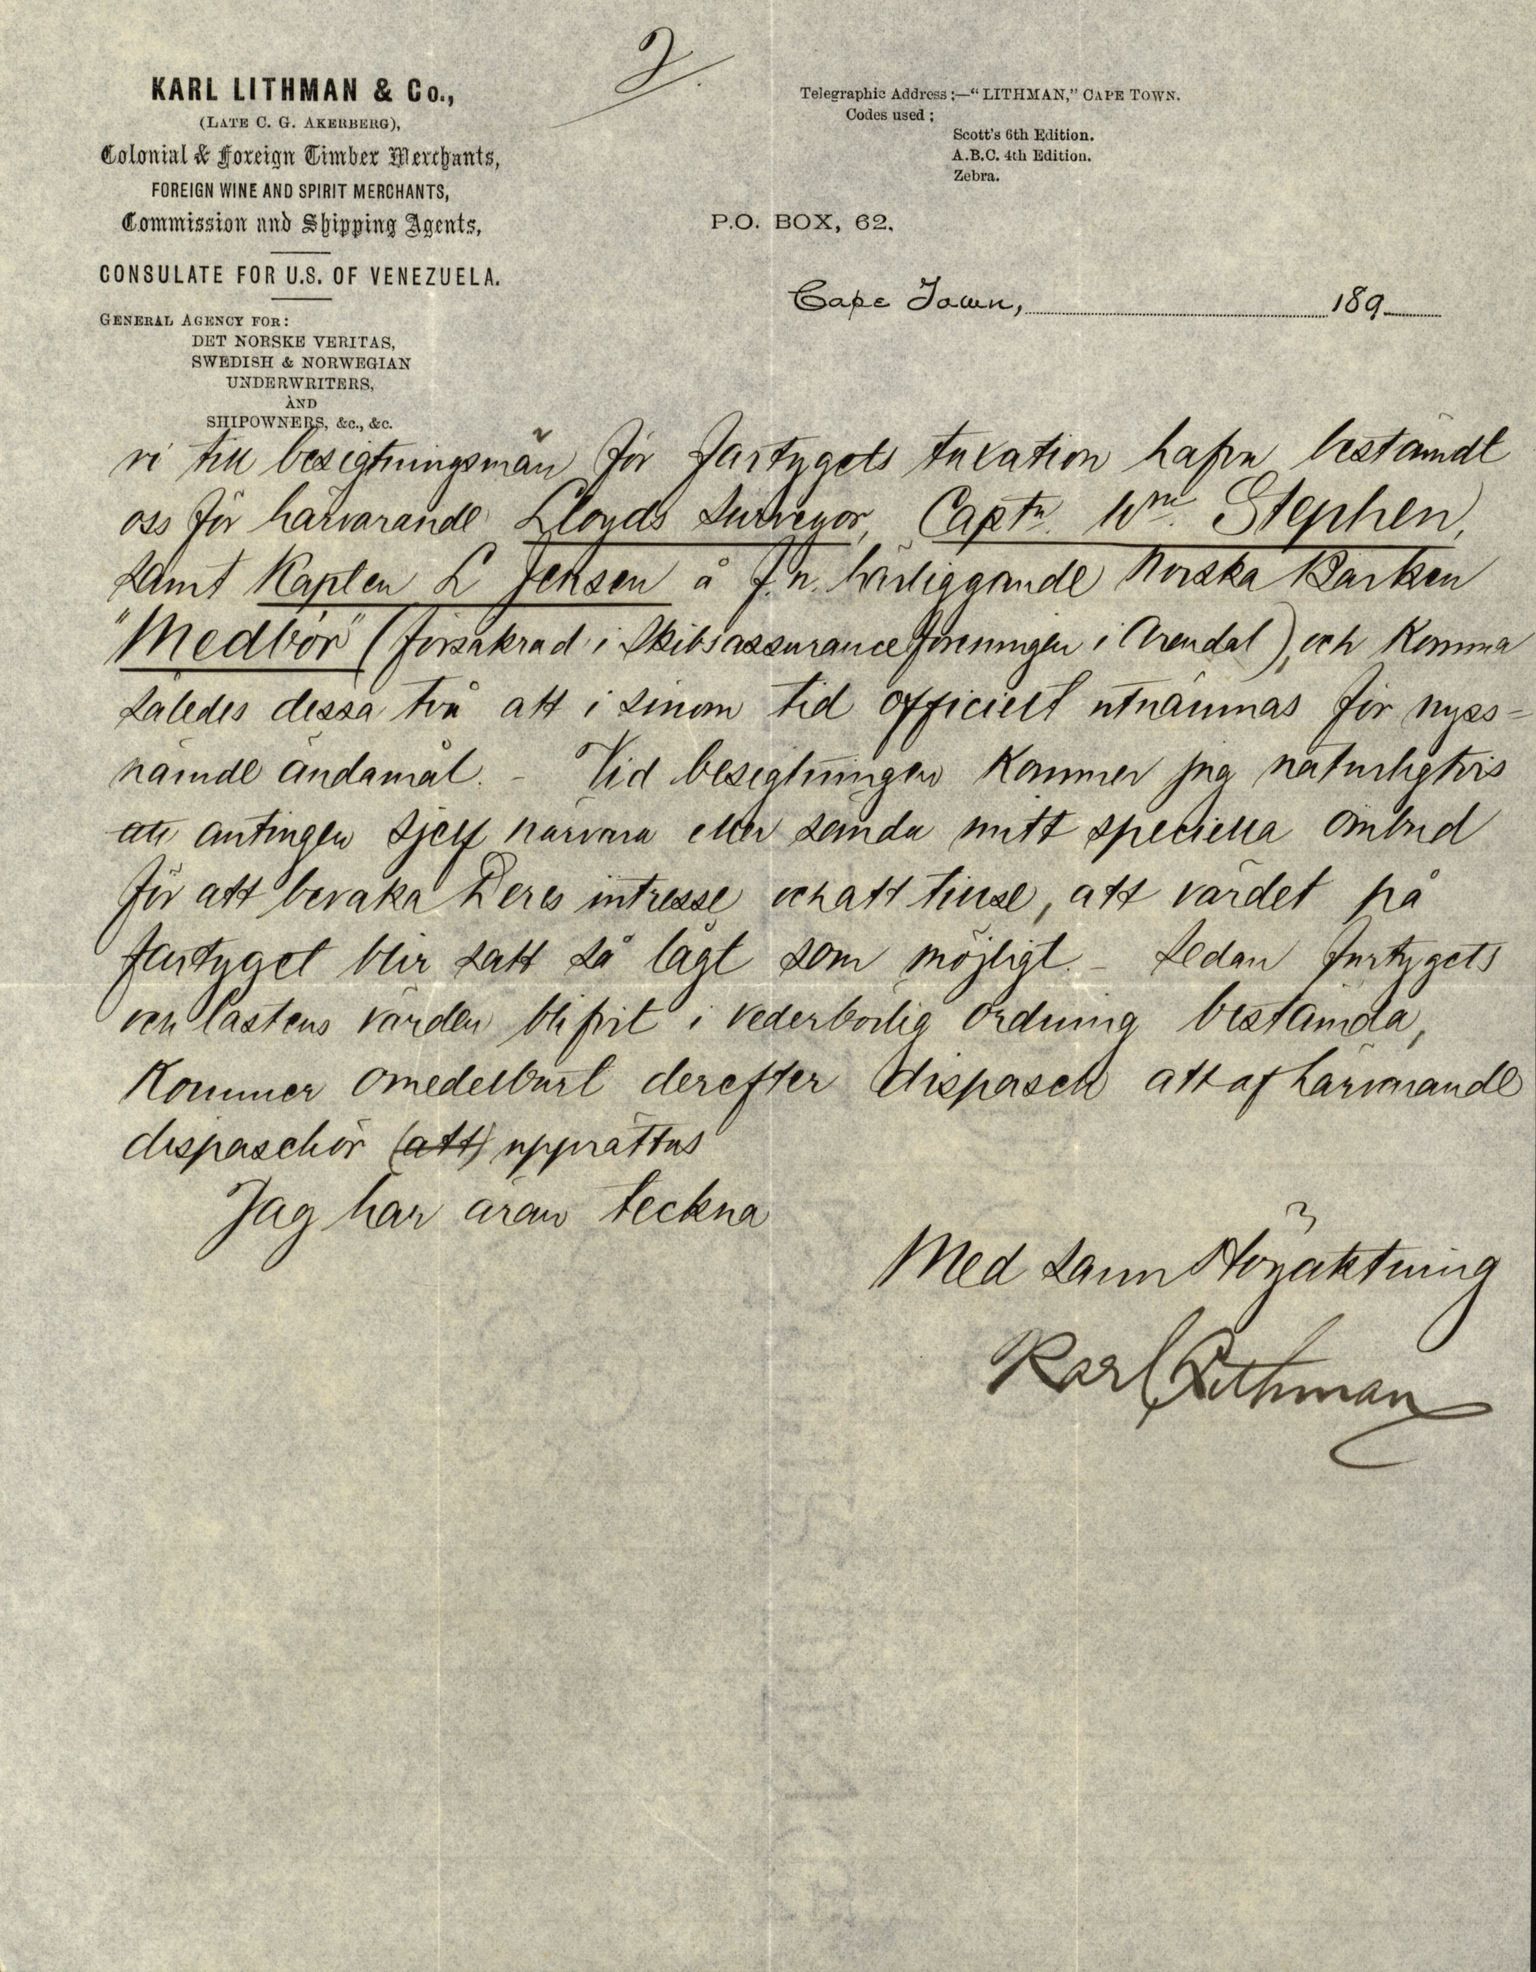 2.
KARL LITHMAN & Co.,
(LATE C. G. AKERBERG),
Colonial & Foreign Timber Merchants,
FOREIGN WINE AND SPIRIT MERCHANTS,
Commission and Shipping Agents,
CONSULATE FOR U.S. OF VENEZUELA.
GENERAL AGENCY FOR:
DET NORSKE VERITAS,
SWEDISH & NORWEGIAN
UNDERWRITERS,
AND
SHIPOWNERS, &c., &c.
Telegraphic Address:—"LITHMAN," CAPE TOWN.
Codes used;
Scott's 6th Edition.
A.B.C. 4th Edition.
Zebra.
P.O. BOX, 62.
Cape Town, 189
vi till besigtningsmän för fartygets taxation hafva bestämdt
oss för härvarande Lloyds Surveyor, Captn. Wm. Stephen,
samt Kapten L Jensen å f.n. härliggande Norska Barken
"Medbör" (försäkrad i Skibsassuranceforeningen i Arendal), och komma
således dessa två att i sinom tid officielt utnämnas för nyss=
nämde ändamål. – Vid besigtningen kommer jag naturligtvis
att antingen sjelf närvara eller sända mitt speciella ombud
för att bevaka Deres intresse och att tillse, att värdet på
fartyget blir satt så lågt som möjligt. – Sedan fartygets
och lastens värden blifvit i vederbörlig ordning bestämda,
kommer omedelbart derefter dispasch att af härvarande
dispaschör (att) upprättas
Jag har äran teckna
Med sann Högaktning
Karl Lithman